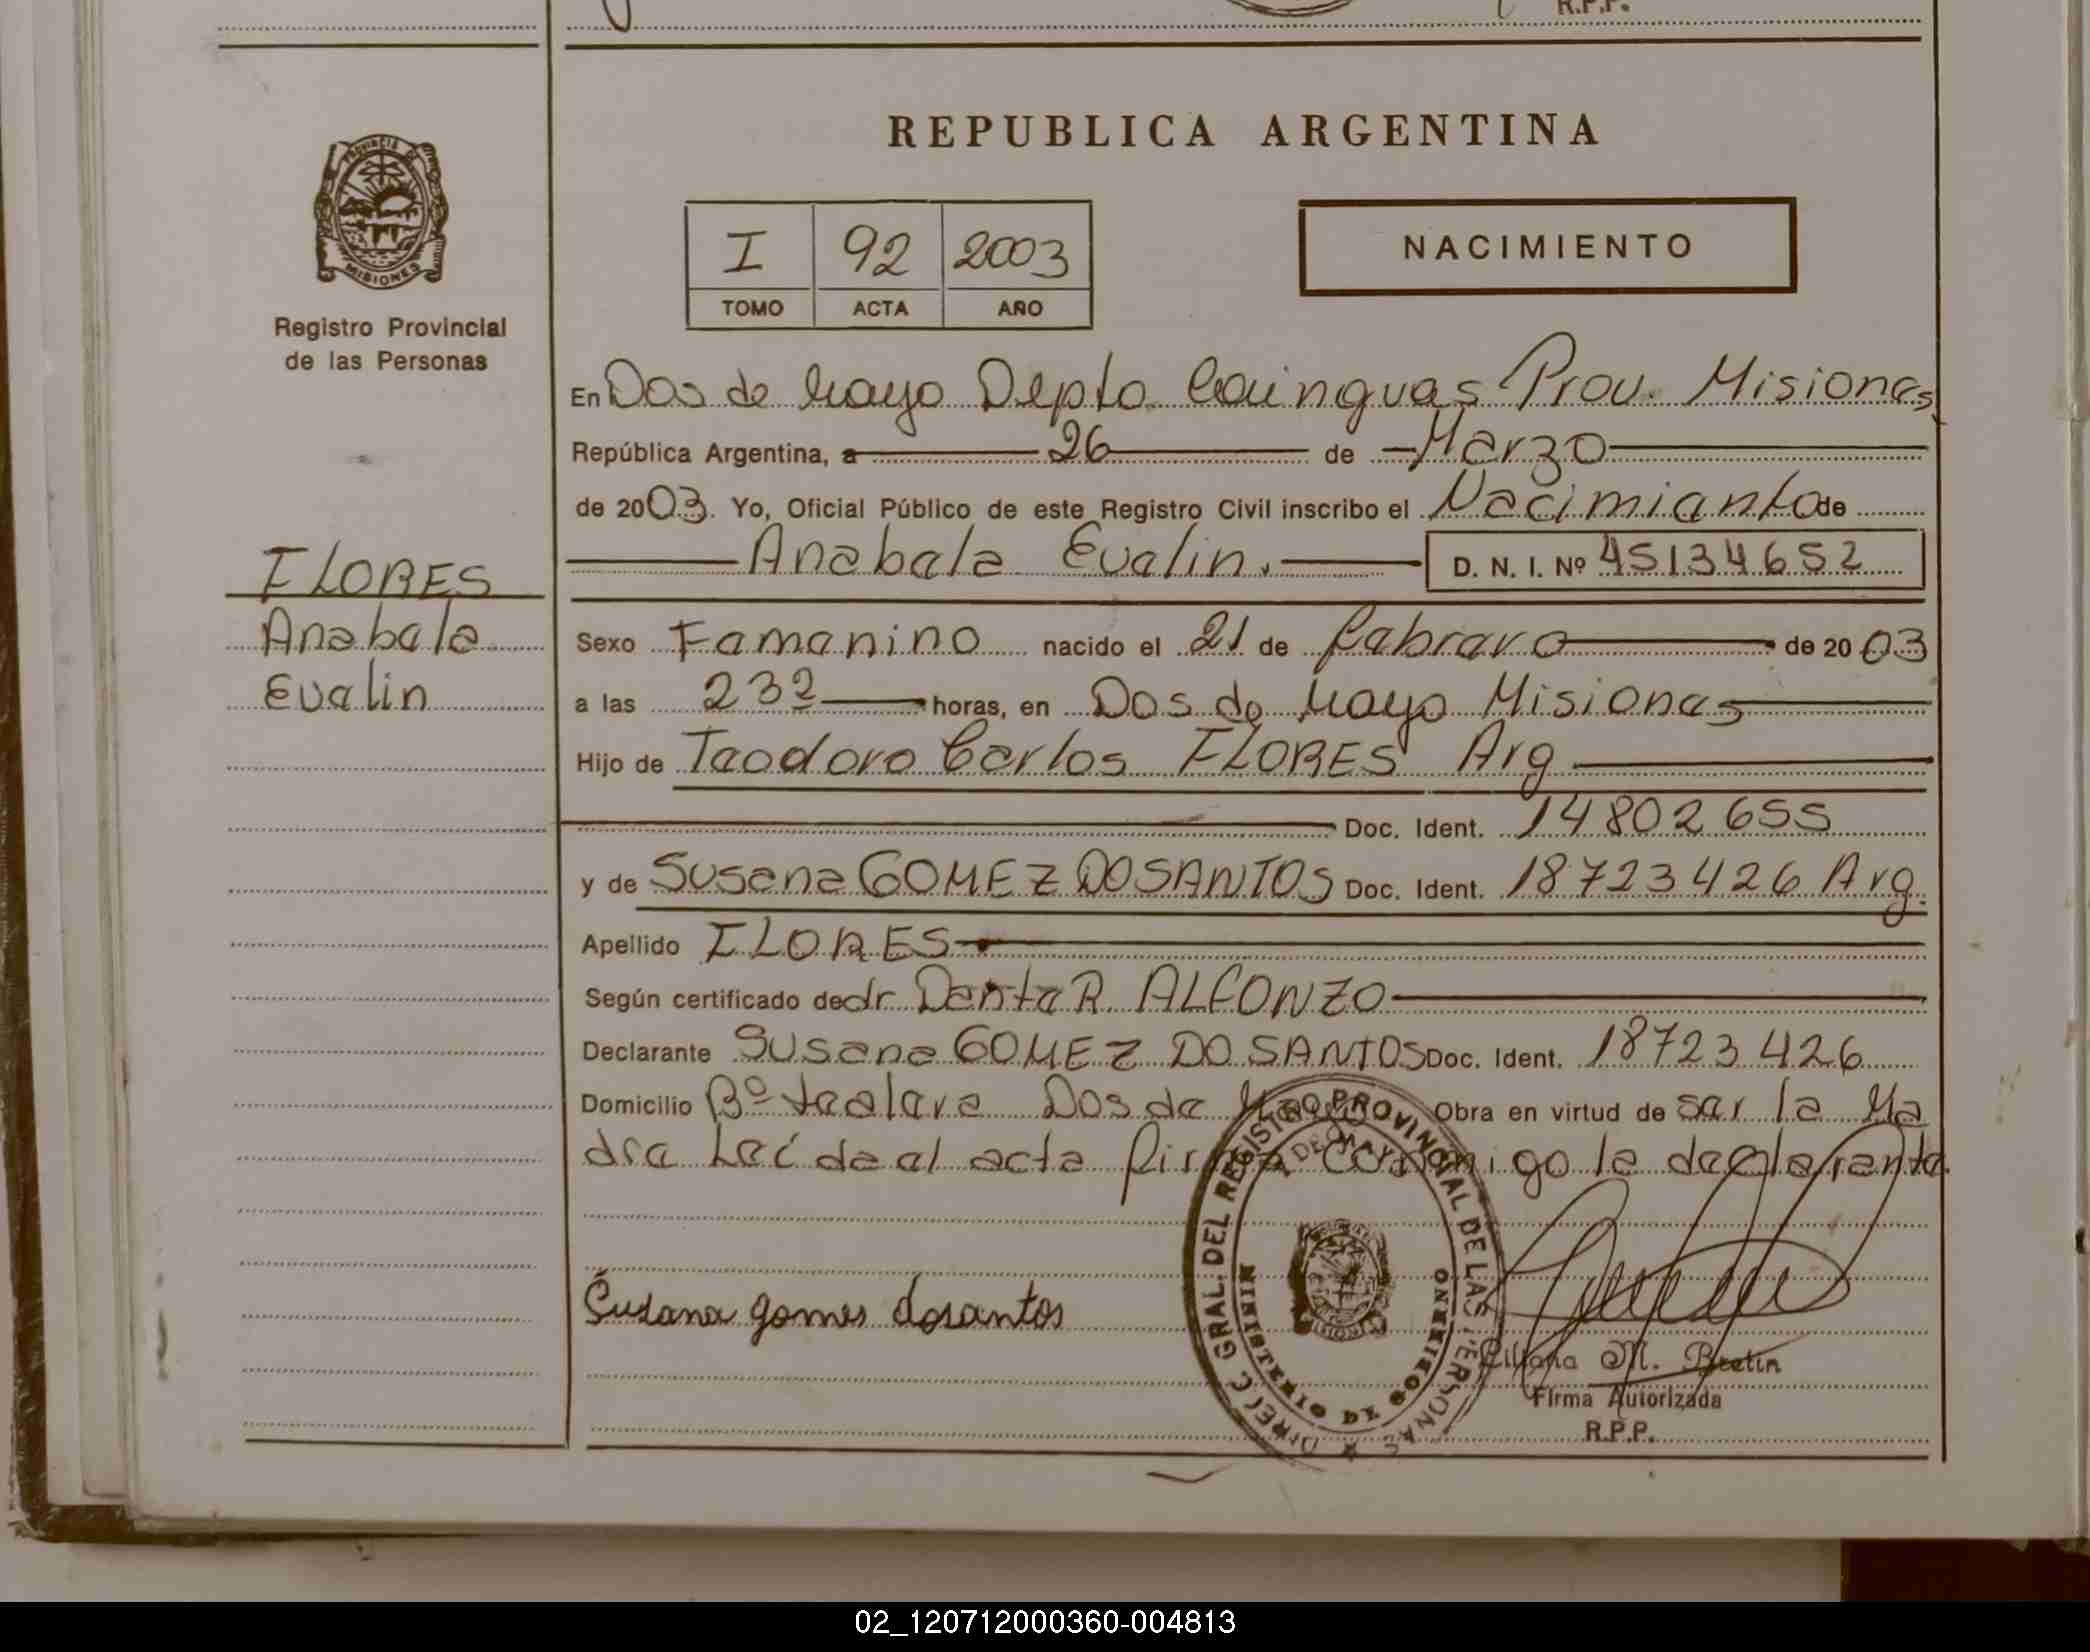 R.P.P.
REPUBLICA ARGENTINA
PROVINCIA DE
MISIONES
I 92 2003
TOMO ACTA AÑO
NACIMIENTO
Registro Provincial
de las Personas
En Dos de Mayo Depto Cainguas Prov. Misiones
República Argentina, a 26 de Marzo
de 2003. Yo, Oficial Público de este Registro Civil inscribo el Nacimiento de
Anabela Evelin. D. N. I. Nº 45134652
FLORES
Anabela
Evelin
Sexo Femenino nacido el 21 de febrero de 2003
a las 23º horas, en Dos de Mayo Misiones
Hijo de Teodoro Carlos FLORES Arg
Doc. Ident. 14802655
y de Susana GOMEZ DOSANTOS Doc. Ident. 18723426 Arg.
Apellido FLORES
Según certificado de dr R. ALFONZO
Declarante Susana GOMEZ DO SANTOS Doc. Ident. 18723426
Domicilio Bº Dos de Mayo Obra en virtud de ser la Ma
dre Leída el acta firma conmigo la declarante.
Susana gomes dosantos
DIREC. GRAL. DEL REGISTRO PROVINCIAL DE LAS PERSONAS
2 DE MAYO
MINISTERIO DE GOBIERNO
Liliana M. Bretin
Firma Autorizada
R.P.P.
02_120712000360-004813